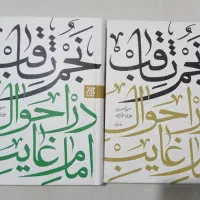 نجم ثاقب
در احوال
امام غایب
نجم ثاقب
در احوال
امام غایب